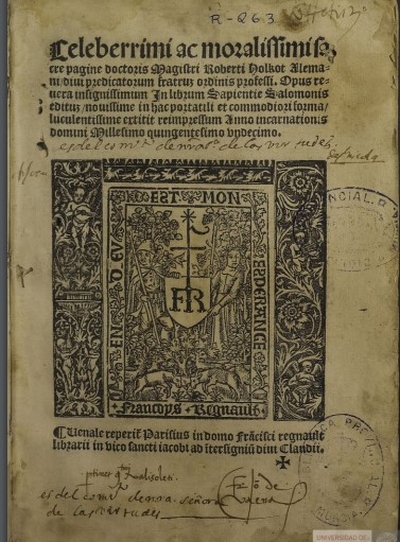 R-263
Celeberrimi ac moralissimi sa
cre pagine doctoris Magistri Roberti Holkot Alema
ni diui predicatorum fratrum ordinis professi. Opus re
uera insignissimum In librum Sapientie Salomonis
editum / nouissime in hac portatili et commodiori forma /
luculentissime extitit reimpressum Anno incarnationis
domini Millesimo quingentesimo vndecimo.
es del
EN D EV
EST MON
ESPERANCE
FR
Francoys Regnault
Venale reperit Parisius in domo Frācisci regnault
librarii in vico sancti iacobi ad īterсignū diui Claudii.
es del de nra señora
de las virtudes
UNIVERSIDAD DE